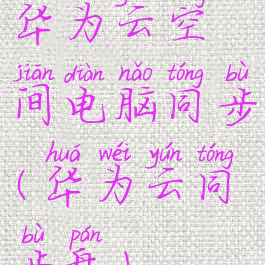 华为云空
jiān diàn nǎo tóng bù
间电脑同步
huá wéi yún tóng
(华为云同
bù pán
步盘)